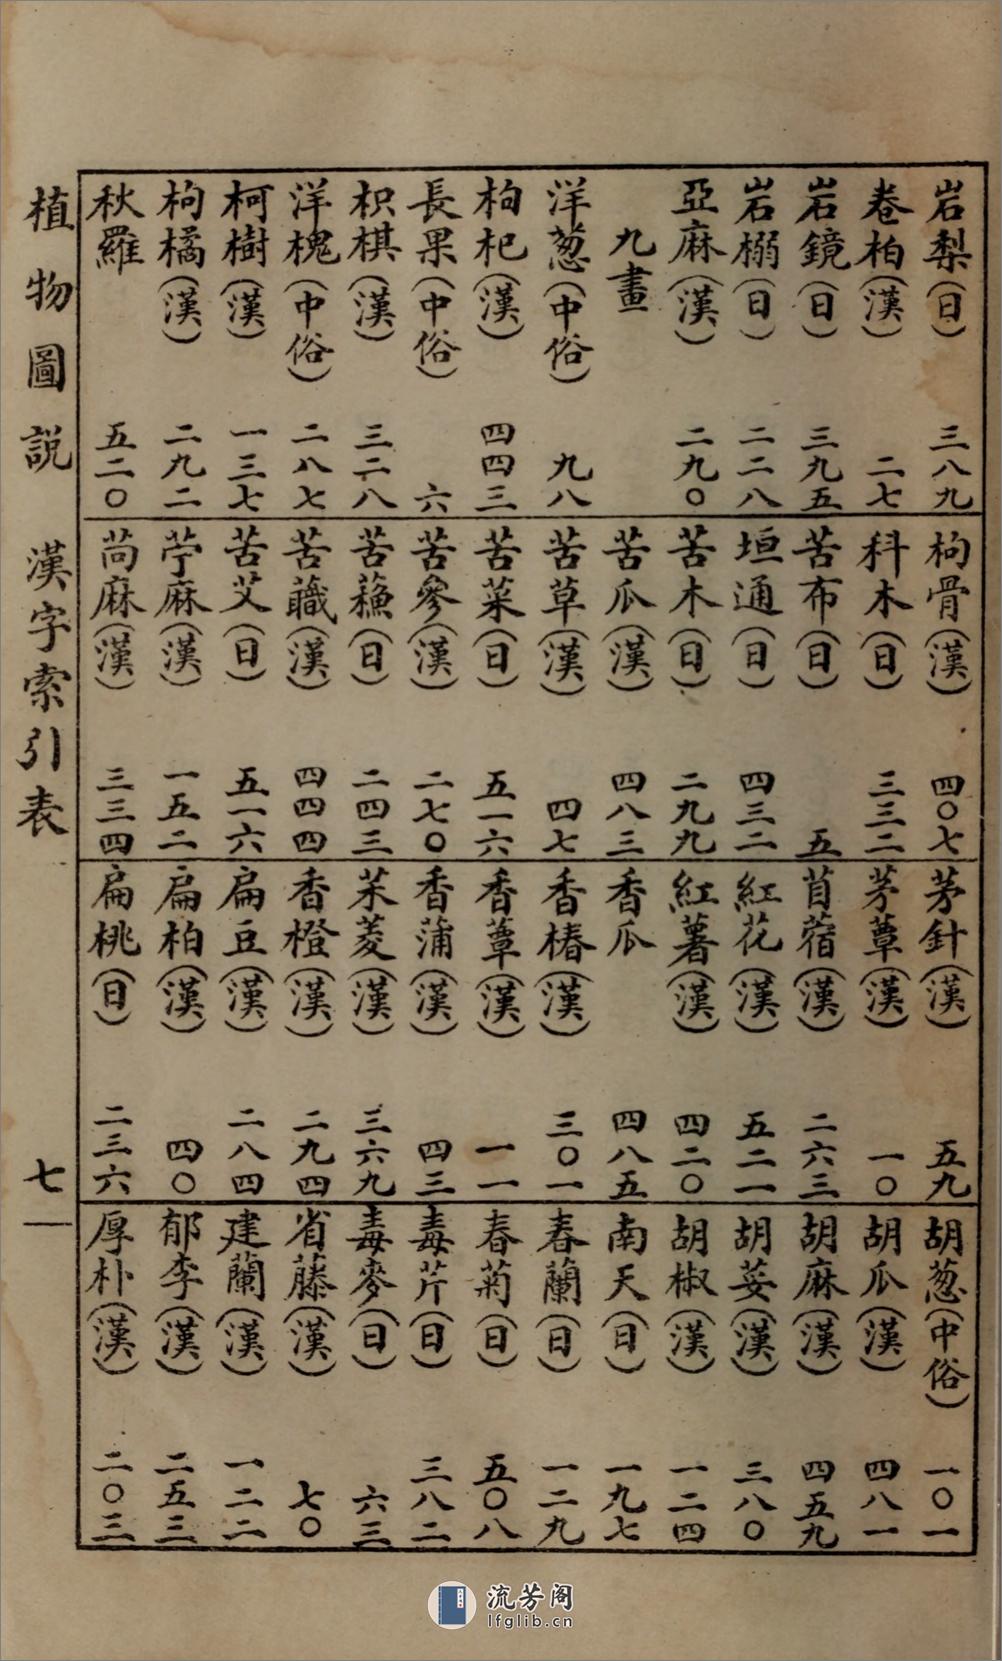 岩梨(日) 三八九
卷柏(漢) 二七
岩鏡(日) 三九五
岩榒(日) 二二八
亞麻(漢) 二九〇
九畫
洋葱(中俗) 九八
枸杞(漢) 四四三
長果(中俗) 六
枳椇(漢) 三二八
洋槐(中俗) 二八七
柯樹(漢) 一三七
枸橘(漢) 二九二
秋羅 五二〇
枸骨(漢) 四〇七
科木(日) 三三二
苦布(日) 五
垣通(日) 四三二
苦木(日) 二九九
苦瓜(漢) 四八三
苦草(漢) 四七
苦菜(日) 五一六
苦參(漢) 二七〇
苦蘓(日) 二四三
苦蘵(漢) 四四四
苦艾(日) 五一六
苧麻(漢) 一五二
苘麻(漢) 三三四
茅針(漢) 五九
茅蕈(漢) 一〇
苜蓿(漢) 二六三
紅花(漢) 五二一
紅薯(漢) 四二〇
香瓜 四八五
香椿(漢) 三〇一
香蕈(漢) 一一
香蒲(漢) 四三
茱菱(漢) 三六九
香橙(漢) 二九四
扁豆(漢) 二八四
扁柏(漢) 四〇
扁桃(日) 二三六
胡葱(中俗) 一〇一
胡瓜(漢) 四八一
胡麻(漢) 四五九
胡荽(漢) 三八〇
胡椒(漢) 一二四
南天(日) 一九七
春蘭(日) 一二九
春菊(日) 五〇八
毒芹(日) 三八二
毒麥(日) 六三
省藤(漢) 七〇
建蘭(漢) 一二二
郁李(漢) 二五三
厚朴(漢) 二〇三
植物圖説 漢字索引表 七一
流芳阁
lfglib.cn